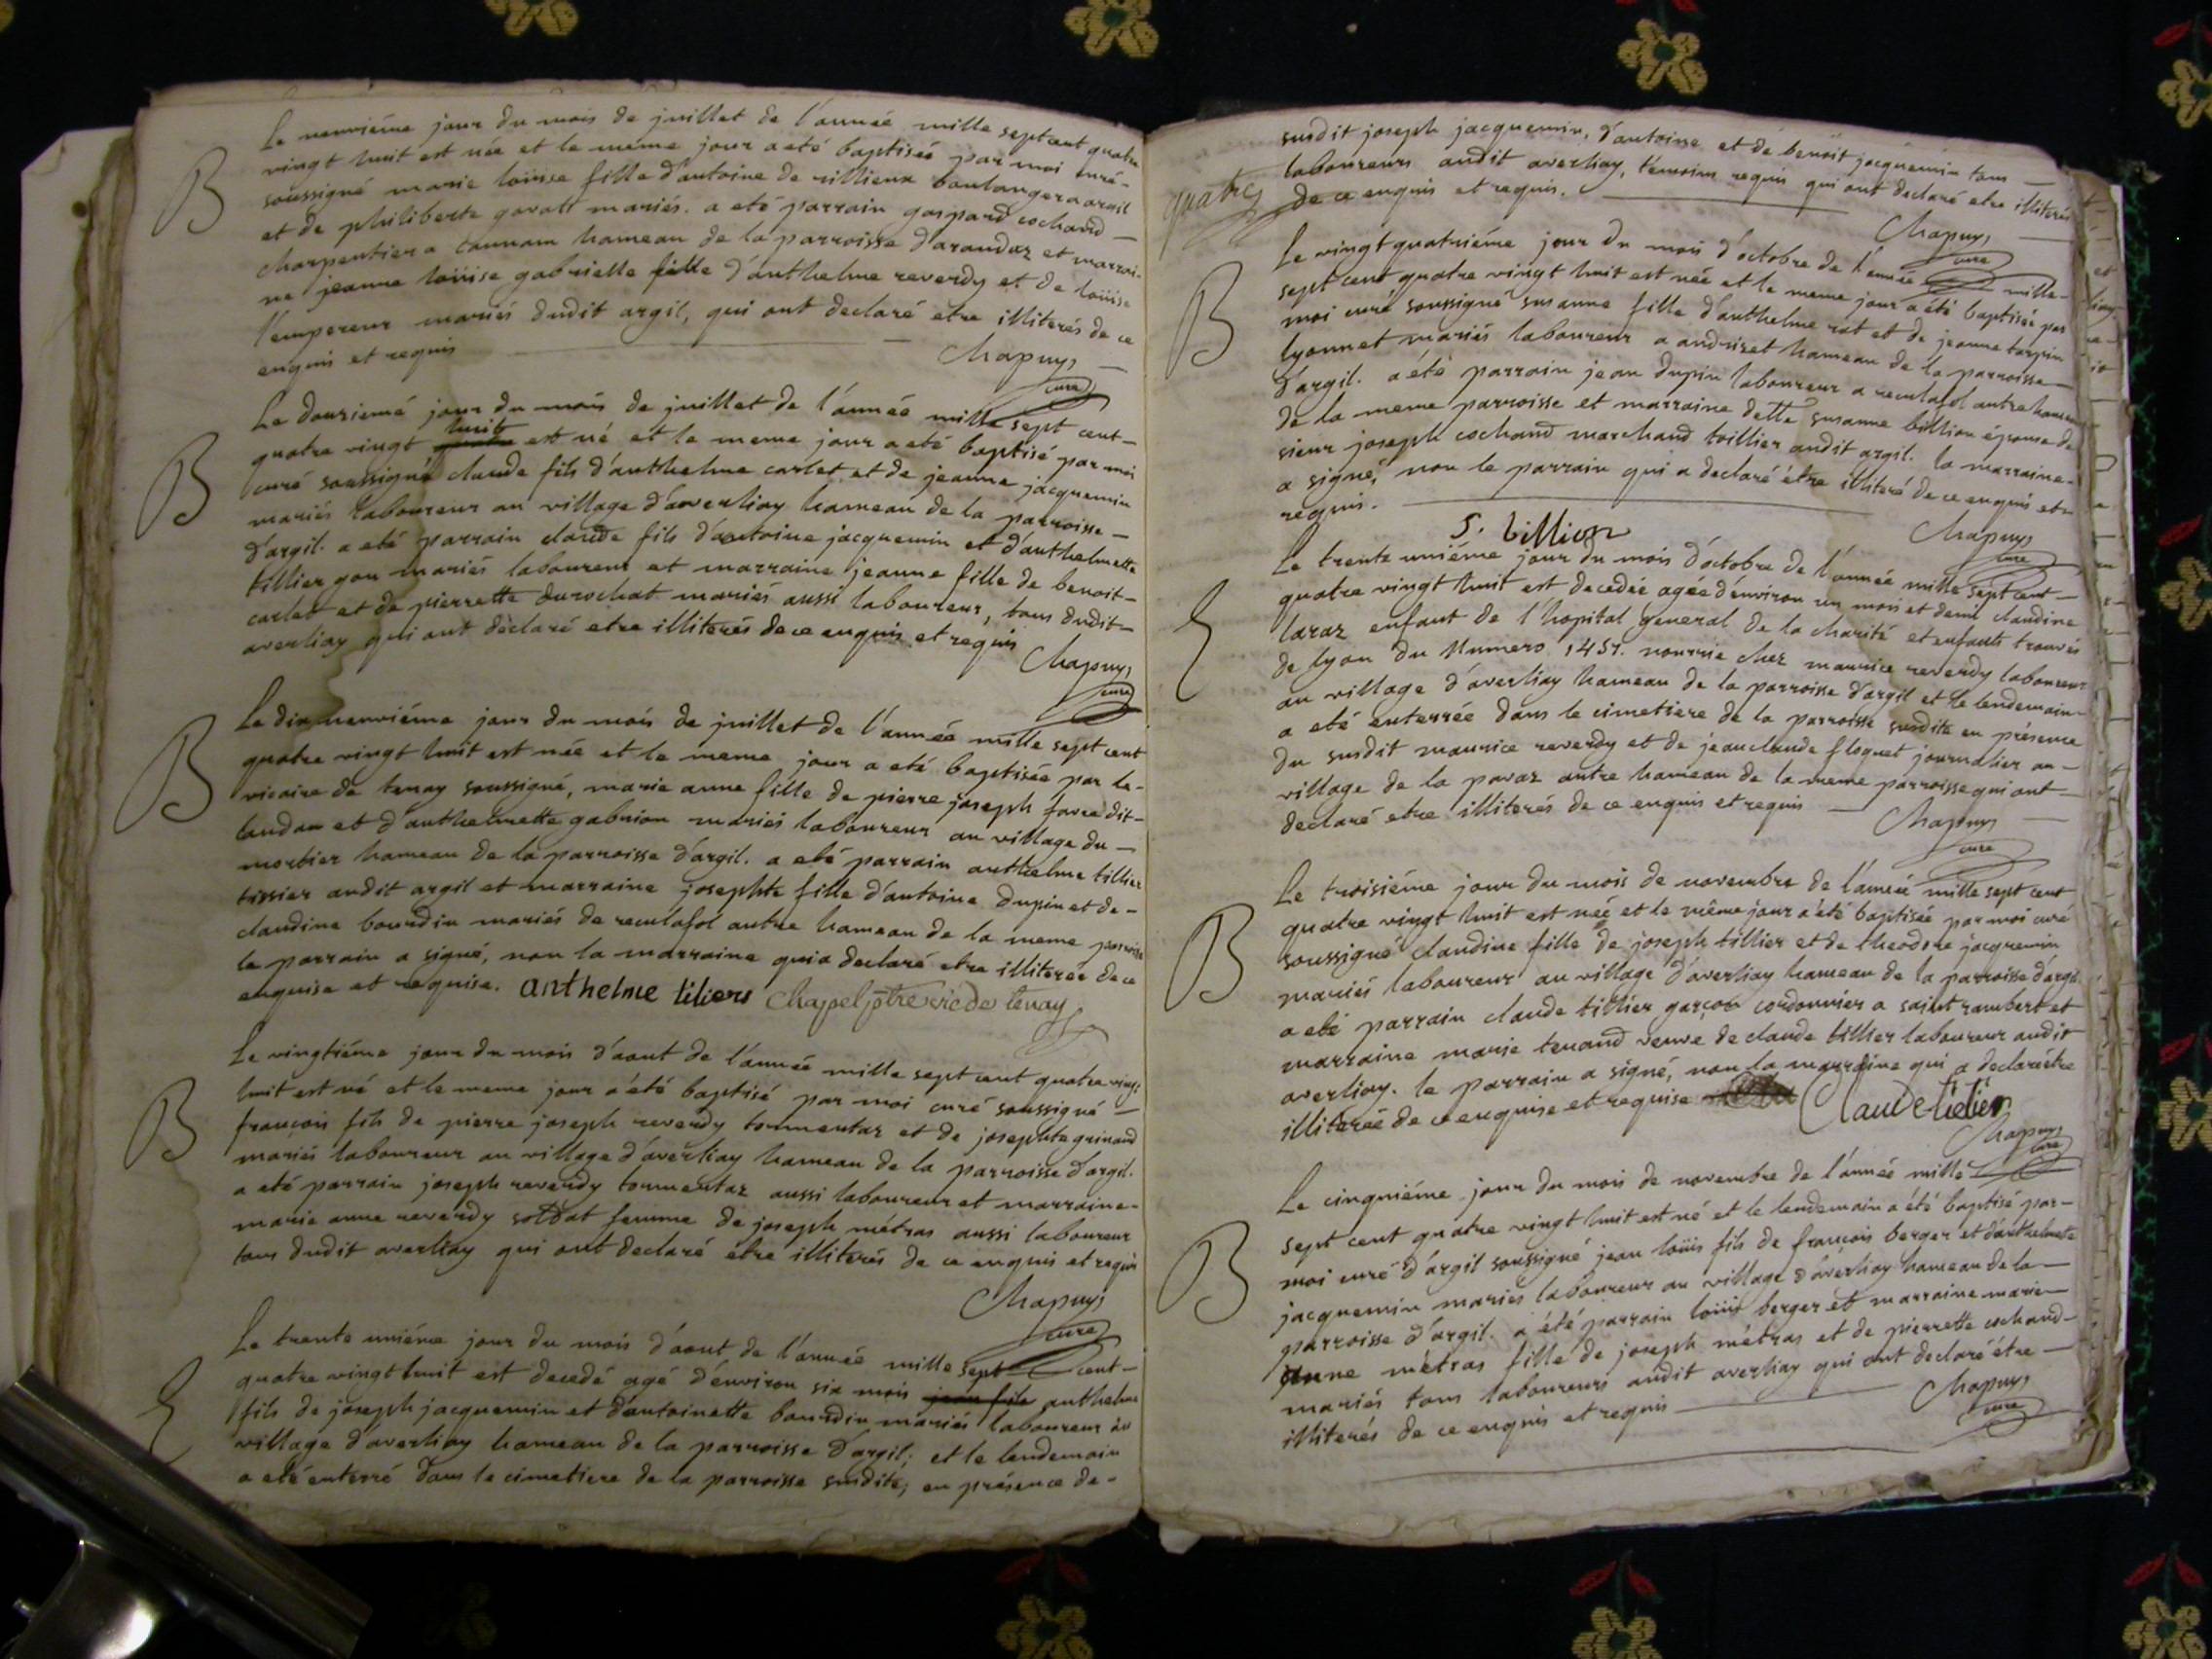 Le neuviéme jour du mois de juillet de l'année mille septcent quatre
vingt huit est née et le meme jour a eté baptisée par moi curé-
soussigné marie loüise fille d'antoine de rillieux boulanger a argil
et de philiberte gavatt mariés. a eté parrain gaspard cochand
charpentier a hameau de la parroisse d'arandaz et marrai-
ne jeanne loüise gabrielle fille d'anthelme reverdy et de loüise
l'empereur mariés dudit argil, qui ont declaré etre illiterés de ce
enquis et requis
Chapuys
curé
B
Le douziemé jour du mois de juillet de l'année mille sept cent-
huit
quatre vingt est né et le meme jour a eté baptisé par moi
curé soussigné claude fils d'anthelme carlet et de jeanne jacquemin
mariés laboureur au village d'averliay hameau de la parroisse-
d'argil. a eté parrain claude fils d'antoine jacquemin et d'anthelmette
tillier gon mariés laboureur et marraine jeanne fille de benoit-
carlet et de pierrette durochat mariés aussi laboureur, tous dudit-
averliay qui ont déclaré etre illiterés de ce enquis et requis
Chapuys
curé
B
Le dix neuviéme jour du mois de juillet de l'année mille sept cent
quatre vingt huit est née et le meme jour a eté baptisée par le-
vicaire de tenay soussigné, marie anne fille de pierre joseph favre dit-
landau et d'anthelmette gabrion mariés laboureur au village du-
morbier hameau de la parroisse d'argil. a eté parrain anthelme tillier
tissier audit argil et marraine josephte fille d'antoine dupin et de-
claudine bourdin mariés de reculafol autre hameau de la meme parroisse
le parrain a signé, non la marraine qui a declaré etre illiterée de ce
enquise et requise. anthelme tiliers Chapel ptre vic de tenay
B
Le vingtiéme jour du mois d'aout de l'année mille sept cent quatre vingt
huit est né et le meme jour a été baptisé par moi curé soussigné-
françois fils de pierre joseph reverdy tormentaz et de josephte grinand
mariés laboureur au village d'averliay hameau de la parroisse d'argil.
a eté parrain joseph reverdy tormentaz aussi laboureur et marraine-
marie anne reverdy soldat femme de joseph métras aussi laboureur
tous dudit averliay qui ont declaré etre illiterés de ce enquis et requis
Chapuys
curé
B
Le trente uniéme jour du mois d'aout de l'année mille sept cent-
quatre vingt huit est decedé agé d'environ six mois jean fils anthelme
fils de joseph jacquemin et d'antoinette bourdin mariés laboureur au
village d'averliay hameau de la parroisse d'argil; et le lendemain
a eté enterré dans le cimetiere de la parroisse susdite, en présence de-
susdit joseph jacquemin, d'antoine et de benoit jacquemin tous
laboureurs audit averliay, témoins requis qui ont declaré etre illiterés
de ce enquis et requis.
quatre
Chapuys
curé
B
Le vingt quatriéme jour du mois d'octobre de l'année mille-
sept cent quatre vingt huit est née et le meme jour a été baptisée par
moi curé soussigné susanne fille d'anthelme rat et de jeanne tarpin
lyonnet mariés laboureur a andriset hameau de la parroisse
d'argil. a été parrain jean dupin laboureur a reculafol autre hameau
de la meme parroisse et marraine delle susanne billion épouse de
sieur joseph cochand marchand toillier audit argil. la marraine-
a signé, non le parrain qui a declaré être illiteré de ce enquis et-
requis.
S. billion
Chapuys
curé
Le trente uniéme jour du mois d'octobre de l'année mille sept cent-
quatre vingt huit est decedée agée d'environ un mois et demi claudine
laraz enfant de l'hopital general de la charité et enfants trouvés
de lyon du Numero 1451. nourrie chez maurice reverdy laboureur
au village d'averliay hameau de la parroisse d'argil et le lendemain-
a eté enterrée dans le cimetiere de la parroisse susdite en présence
du susdit maurice reverdy et de jean claude floquet journalier au-
village de la pavaz autre hameau de la meme parroisse qui ont-
declaré etre illiterés de ce enquis et requis
Chapuys
curé
B
Le troisiéme jour du mois de novembre de l'année mille sept cent
quatre vingt huit est née et le même jour a été baptisée par moi curé
soussigné claudine fille de joseph tillier et de theodore jacquemin
mariés laboureur au village d'averliay hameau de la parroisse d'argil
a eté parrain claude tillier garçon cordonnier a saint rambert et
marraine marie tenand veuve de claude tillier laboureur audit
averliay. le parrain a signé, non la marraine qui a declaré être
illiterée de ce enquise et requise Claude tielier
Chapuys
curé
B
Le cinquiéme jour du mois de novembre de l'année mille
sept cent quatre vingt huit est né et le lendemain a été baptisé par-
moi curé d'argil soussigné jean loüis fils de françois berger et d'anthelmete
jacquemin mariés laboureur au village d'averliay hameau de la-
parroisse d'argil. a été parrain loüis berger et marraine marie-
anne métras fille de joseph métras et de pierrette cochand-
mariés tous laboureurs audit averliay qui ont declaré être-
illiterés de ce enquis et requis
Chapuys
curé
B